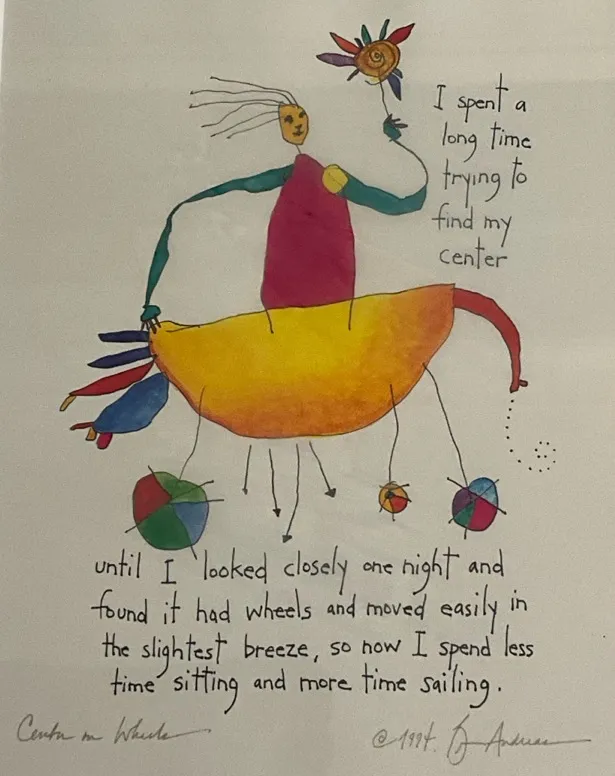 I spent a
long time
trying to
find my
center
until I looked closely one night and
found it had wheels and moved easily in
the slightest breeze, so now I spend less
time sitting and more time sailing.
Center on Wheels
©1994. Andreas